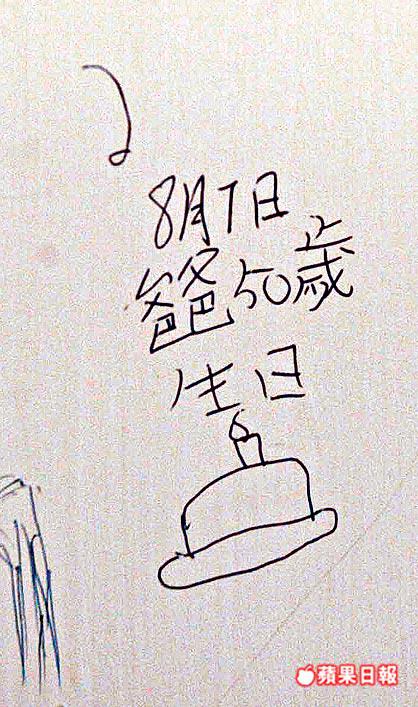 8月7日
爸爸50歲
生日
蘋果日報